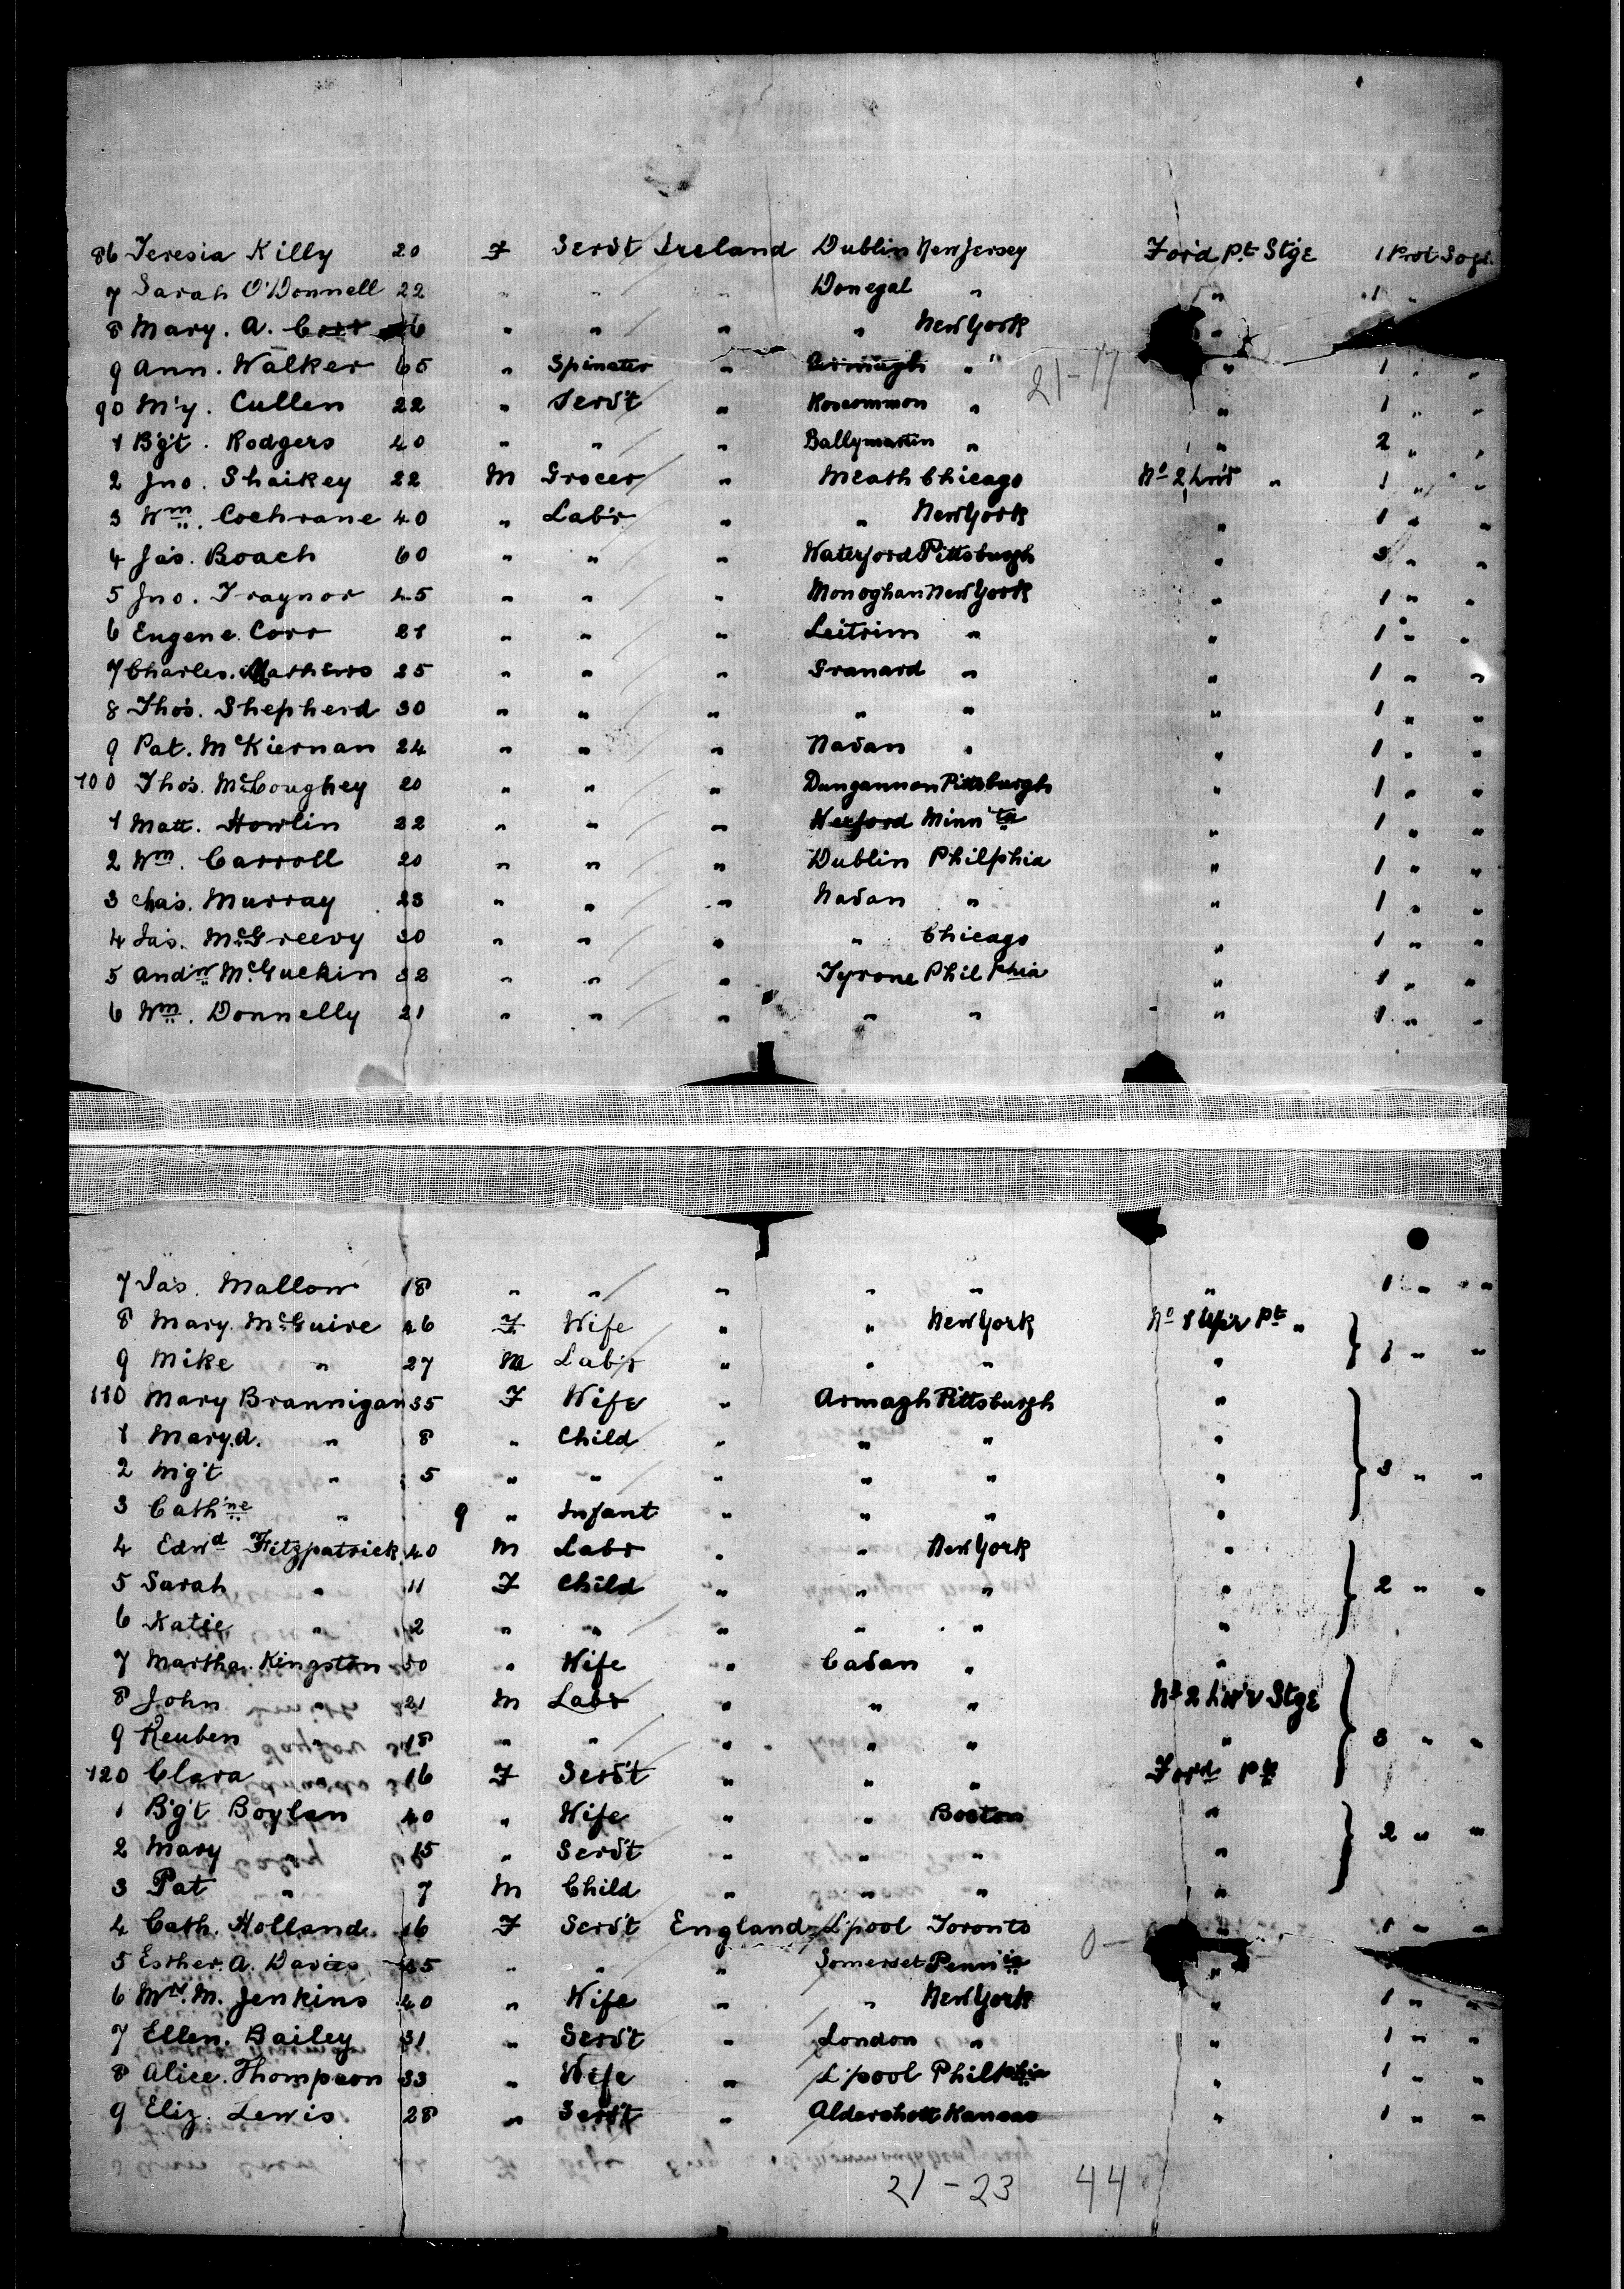 86 Teresia Killy 20 F Servt Ireland Dublin New Jersey For'd Pt Stge 1 Prot Sojr.
7 Sarah O'Donnell 22 " " " Donegal " " 1 "
8 Mary. A. Corr 6 " " " " New York "
9 Ann. Walker 65 " Spinster " Armagh " " 1 " "
21-17
90 M'y. Cullen 22 " Serv't " Roscommon " " 1 " "
1 B'g't. Rodgers 40 " " " Ballymartin " " 2 " "
2 Jno. Shaikey 22 M Grocer " Meath Chicago No 2 Lwr " 1 " "
3 Wm. Cochrane 40 " Lab'r " " New York " 1 " "
4 Ja's. Boach 60 " " " Waterford Pittsburgh " 3 " "
5 Jno. Traynor 45 " " " Monoghan New York " 1 " "
6 Eugene. Corr 21 " " " Leitrim " " 1 " "
7 Charles. Mathews 25 " " " Granard " " 1 " "
8 Tho's. Shepherd 30 " " " " " " 1 " "
9 Pat. McKiernan 24 " " " Navan " " 1 " "
100 Tho's. McCoughey 20 " " " Dungannon Pittsburgh " 1 " "
1 Matt. Howlin 22 " " " Wexford Minn'ta " 1 " "
2 Wm. Carroll 20 " " " Dublin Philphia " 1 " "
3 Cha's. Murray 23 " " " Navan " " 1 " "
4 Ja's. McGreevy 30 " " " " Chicago " 1 " "
5 Andrw McGuckin 32 " " " Tyrone Philphia " 1 " "
6 Wm. Donnelly 21 " " " " " " 1 " "
7 Ja's. Mallow 18 " " " " " " 1 " "
8 Mary. McGuire 26 F Wife " " New York No 1 Up'r Pt "
9 Mike " 27 M Lab'r " " " " 1 " "
110 Mary Brannigan 35 F Wife " Armagh Pittsburgh "
1 Mary. A. " 8 " Child " " " "
2 M'g't " 5 " " " " " " 3 " "
3 Cath'ne " 9 " Infant " " " "
4 Edwd Fitzpatrick 40 M Labr " " New York "
5 Sarah " 11 F Child " " " " 2 " "
6 Katie " 2 " " " " " "
7 Martha. Kingston 50 " Wife " Cavan " "
8 John 21 M Labr " " " No 2 Lw'r Stge
9 Reuben " 18 " " " " " " 3 " "
120 Clara 16 F Serv't " " " Ford Pt
1 B'g't Boylan 40 " Wife " " Boston "
2 Mary 15 " Serv't " " " " 2 " "
3 Pat " 7 M Child " " " "
4 Cath. Holland 16 F Serv't England L'pool Toronto 0- " 1 " "
5 Esther. A. Davies 35 " " Somerset Penn'ia "
6 Mrs. M. Jenkins 40 " Wife " " New York " 1 " "
7 Ellen. Bailey 31 " Serv't " London " " 1 " "
8 Alice. Thompson 33 " Wife " L'pool Philphia " 1 " "
9 Eliz. Lewis 28 " Serv't " Aldershott Kansas " 1 " "
21-23 44